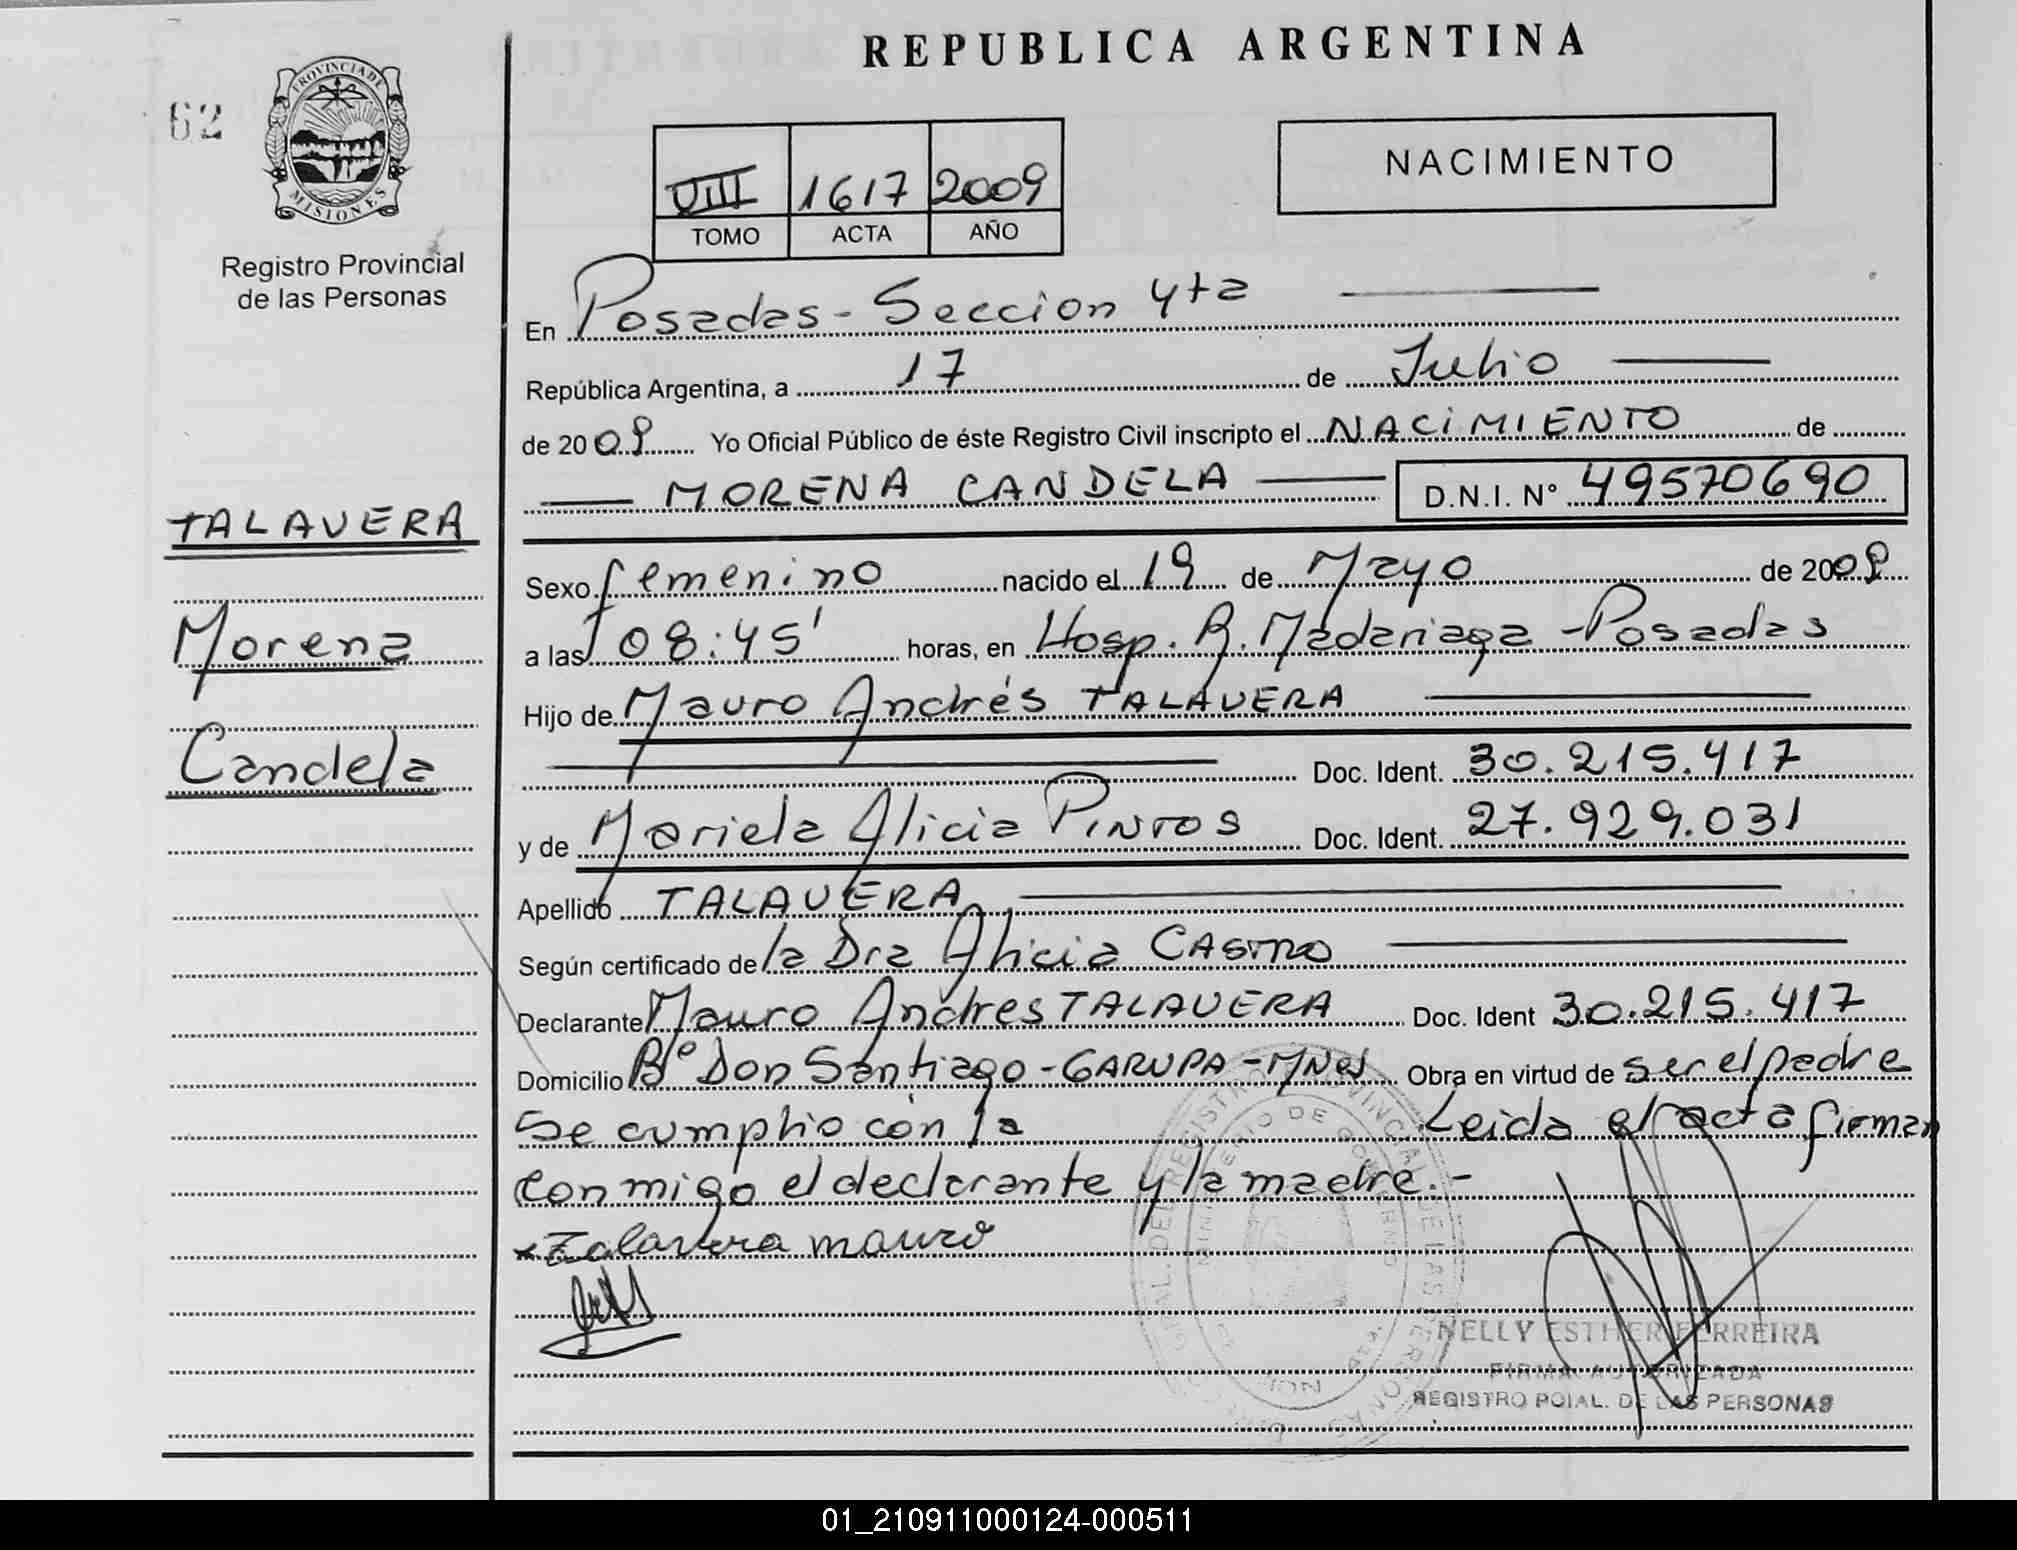 REPUBLICA ARGENTINA
62
PROVINCIA DE
MISIONES
Registro Provincial
de las Personas
VIII 1617 2009
TOMO ACTA AÑO
NACIMIENTO
En Posadas - Seccion 4ta
República Argentina, a 17 de Julio
de 2009 Yo Oficial Público de éste Registro Civil inscripto el NACIMIENTO de
MORENA CANDELA D.N.I. N° 49570690
TALAVERA
Morena
Candela
Sexo femenino nacido el 19 de Mayo de 2009
a las 08:45' horas, en Hosp. R. Madariaga - Posadas
Hijo de Mauro Andrés TALAVERA
Doc. Ident. 30.215.417
y de Mariela Alicia PINTOS Doc. Ident. 27.929.031
Apellido TALAVERA
Según certificado de la Dra Alicia CASTRO
Declarante Mauro Andres TALAVERA Doc. Ident 30.215.417
Domicilio B° Don Santiago - GARUPA - MNES Obra en virtud de ser el padre
Se cumplio con la Leida el acta firman
conmigo el declarante y la madre.-
x Talavera mauro
NELLY ESTHER FERREIRA
FIRMA AUTORIZADA
REGISTRO PCIAL. DE LAS PERSONAS
01_210911000124-000511